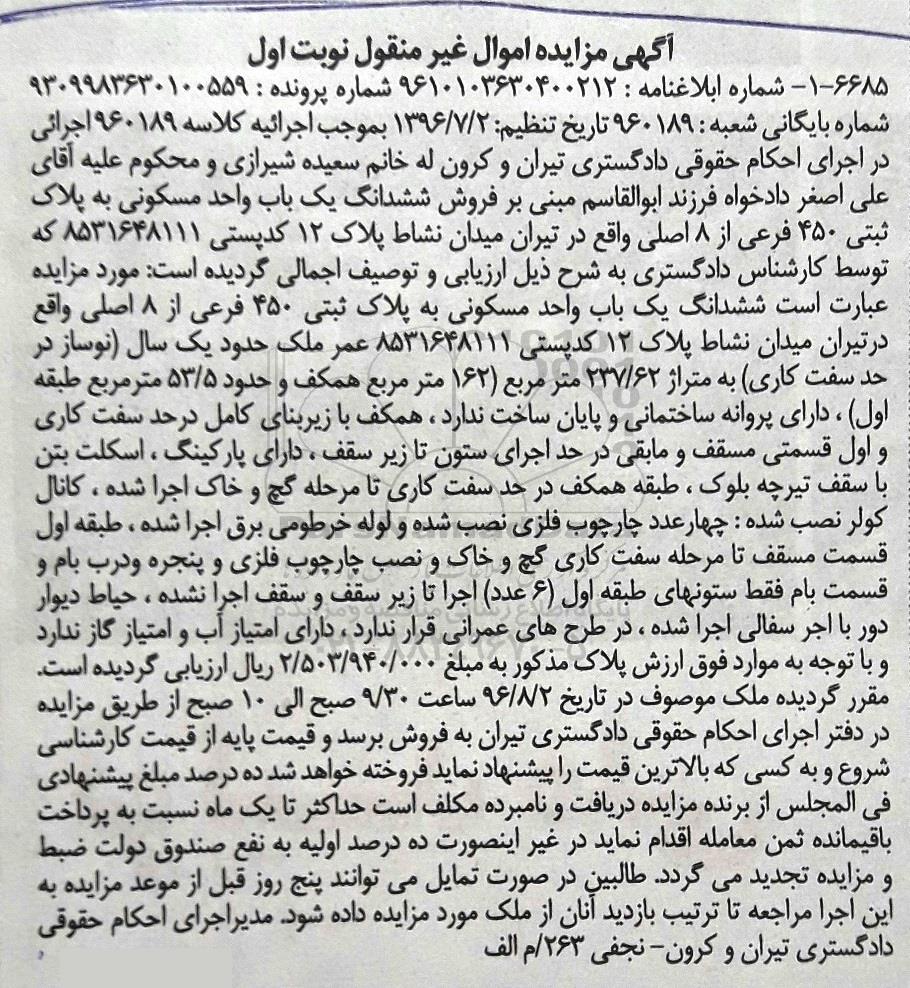 آگهی مزایده اموال غیر منقول نوبت اول
۱-۶۶۸۵- شماره ابلاغنامه : ۹۶۱۰۱۰۳۶۳۰۴۰۰۲۱۲ شماره پرونده : ۹۳۰۹۹۸۳۶۳۰۱۰۰۵۵۹
شماره بایگانی شعبه : ۹۶۰۱۸۹ تاریخ تنظیم: ۱۳۹۶/۷/۲ بموجب اجرائیه کلاسه ۹۶۰۱۸۹ اجرائی
در اجرای احکام حقوقی دادگستری تیران و کرون له خانم سعیده شیرازی و محکوم علیه آقای
علی اصغر دادخواه فرزند ابوالقاسم مبنی بر فروش ششدانگ یک باب واحد مسکونی به پلاک
ثبتی ۴۵۰ فرعی از ۸ اصلی واقع در تیران میدان نشاط پلاک ۱۲ کدپستی ۸۵۳۱۶۴۸۱۱۱ که
توسط کارشناس دادگستری به شرح ذیل ارزیابی و توصیف اجمالی گردیده است: مورد مزایده
عبارت است ششدانگ یک باب واحد مسکونی به پلاک ثبتی ۴۵۰ فرعی از ۸ اصلی واقع
درتیران میدان نشاط پلاک ۱۲ کدپستی ۸۵۳۱۶۴۸۱۱۱ عمر ملک حدود یک سال (نوساز در
حد سفت کاری) به متراژ ۲۳۷/۶۲ متر مربع (۱۶۲ متر مربع همکف و حدود ۵۳/۵ مترمربع طبقه
اول) ، دارای پروانه ساختمانی و پایان ساخت ندارد ، همکف با زیربنای کامل درحد سفت کاری
و اول قسمتی مسقف و مابقی در حد اجرای ستون تا زیر سقف ، دارای پارکینگ ، اسکلت بتن
با سقف تیرچه بلوک ، طبقه همکف در حد سفت کاری تا مرحله گچ و خاک اجرا شده ، کانال
کولر نصب شده : چهارعدد چارچوب فلزی نصب شده و لوله خرطومی برق اجرا شده ، طبقه اول
قسمت مسقف تا مرحله سفت کاری گچ و خاک و نصب چارچوب فلزی و پنجره ودرب بام و
قسمت بام فقط ستونهای طبقه اول (۶ عدد) اجرا تا زیر سقف و سقف اجرا نشده ، حیاط دیوار
دور با اجر سفالی اجرا شده ، در طرح های عمرانی قرار ندارد ، دارای امتیاز آب و امتیاز گاز ندارد
و با توجه به موارد فوق ارزش پلاک مذکور به مبلغ ۲/۵۰۳/۹۴۰/۰۰۰ ریال ارزیابی گردیده است.
مقرر گردیده ملک موصوف در تاریخ ۹۶/۸/۲ ساعت ۹/۳۰ صبح الی ۱۰ صبح از طریق مزایده
در دفتر اجرای احکام حقوقی دادگستری تیران به فروش برسد و قیمت پایه از قیمت کارشناسی
شروع و به کسی که بالاترین قیمت را پیشنهاد نماید فروخته خواهد شد ده درصد مبلغ پیشنهادی
فی المجلس از برنده مزایده دریافت و نامبرده مکلف است حداکثر تا یک ماه نسبت به پرداخت
باقیمانده ثمن معامله اقدام نماید در غیر اینصورت ده درصد اولیه به نفع صندوق دولت ضبط
و مزایده تجدید می گردد. طالبین در صورت تمایل می توانند پنج روز قبل از موعد مزایده به
این اجرا مراجعه تا ترتیب بازدید آنان از ملک مورد مزایده داده شود. مدیراجرای احکام حقوقی
دادگستری تیران و کرون- نجفی ۲۶۳/م الف